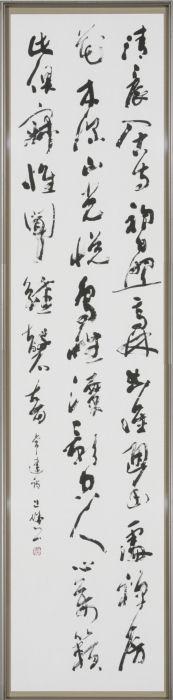 清晨入古寺初日照高林曲徑通幽處禪房
花木深山光悦鳥性潭影空人心萬籟
此俱寂惟聞鐘磬音 常建詩